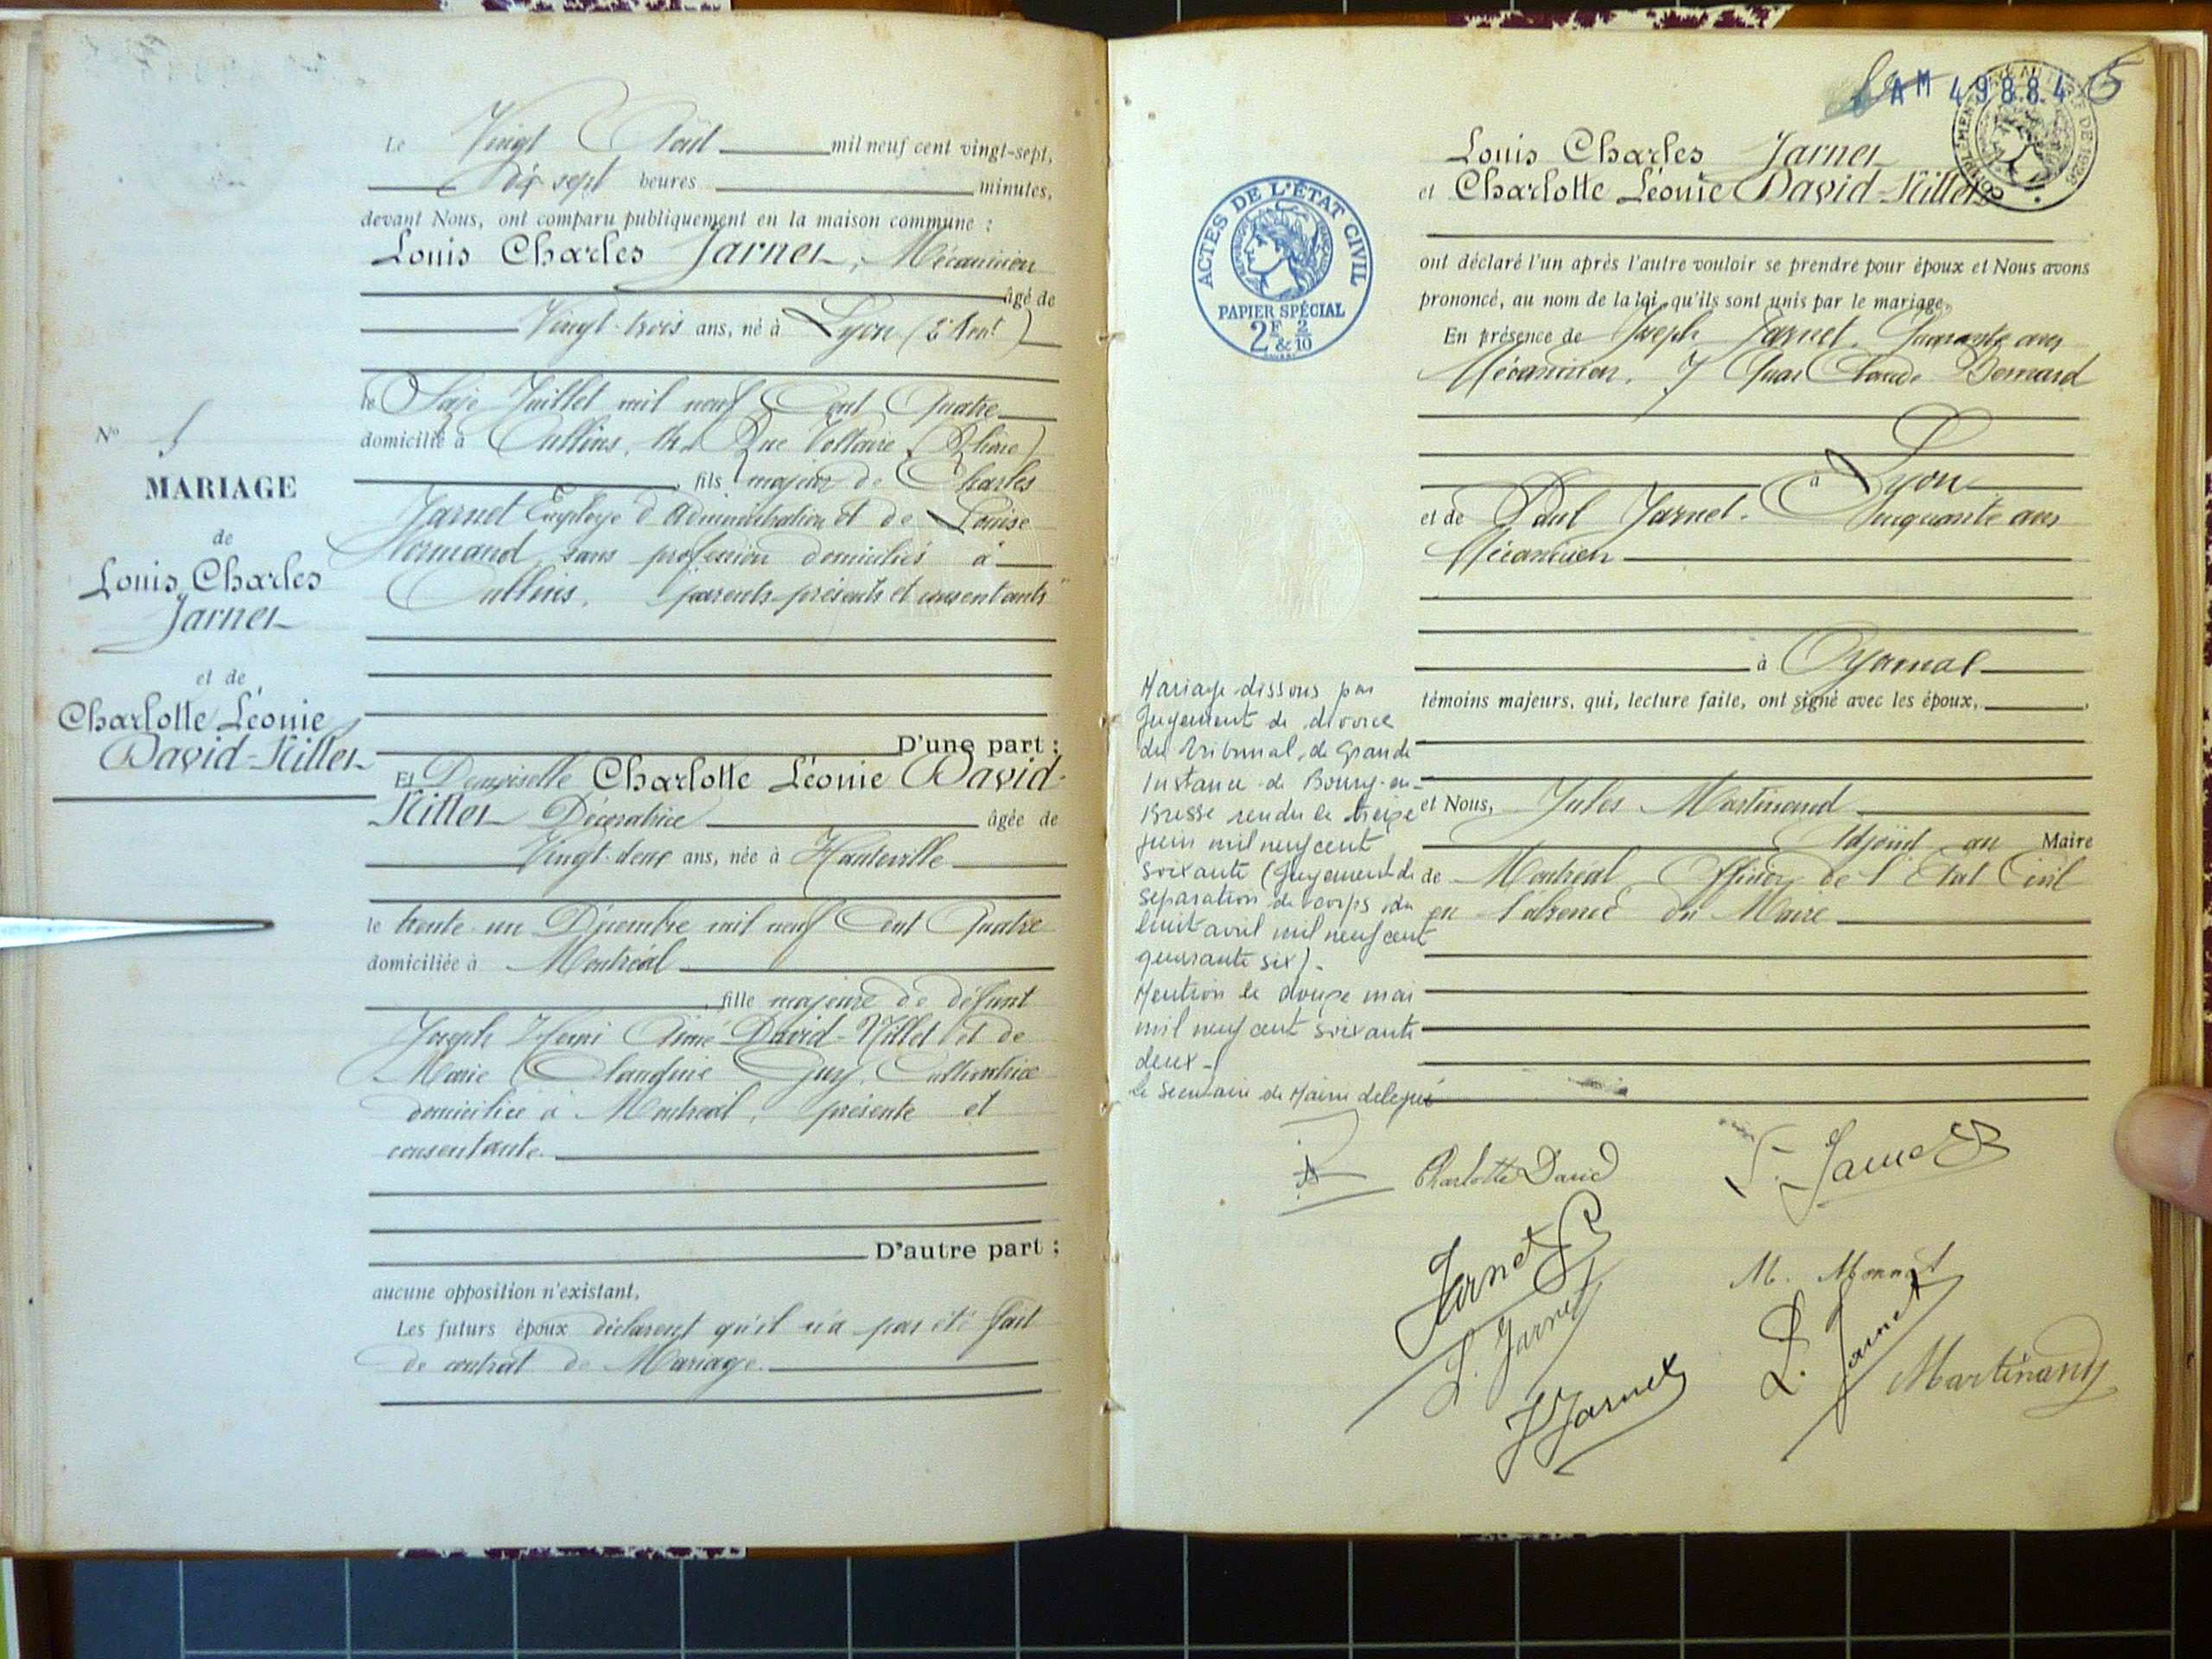 Le Vingt Août mil neuf cent vingt-sept,
dix sept heures minutes,
devant Nous, ont comparu publiquement en la maison commune :
Louis Charles Jarnet, Mécanicien
âgé de
Vingt-trois ans, né à Lyon (2e Arrt)
le Seize Juillet mil neuf Cent Quatre
domicilié à Oullins, Rue Voltaire (Rhône)
fils majeur de Charles
Jarnet Employé d'Administration et de Louise
Normand sans profession domiciliés à
Oullins, parents présents et consentants
N° 5
MARIAGE
de
Louis Charles
Jarnet
et de
Charlotte Léonie
David-Nillet
D'une part ;
Et Demoiselle Charlotte Léonie David-
Nillet Décoratrice âgée de
Vingt-deux ans, née à Hauteville
le trente un Décembre mil neuf Cent Quatre
domiciliée à Montréal
fille majeure de défunt
Joseph Henri Aimé David-Nillet et de
Marie Claudine Guy, Cultivatrice
domiciliée à Montréal, présente et
consentante.
D'autre part ;
aucune opposition n'existant,
Les futurs époux déclarent qu'il n'a pas été fait
de contrat de Mariage.
AM 49884 5
COMPLÉMENT DE 1926
Louis Charles Jarnet
et Charlotte Léonie David-Nillet
ACTES DE L'ÉTAT CIVIL
PAPIER SPÉCIAL
2F & 2/10
ont déclaré l'un après l'autre vouloir se prendre pour époux et Nous avons
prononcé, au nom de la loi, qu'ils sont unis par le mariage.
En présence de Joseph Jarnet, Quarante ans
Mécanicien, 7 Quai Claude Bernard
à Lyon
et de Paul Jarnet, Cinquante ans
Mécanicien
à Oyonnax
témoins majeurs, qui, lecture faite, ont signé avec les époux,
et Nous, Jules Martinand
Adjoint au Maire
de Montréal Officier de l'Etat Civil
en l'absence du Maire
Mariage dissous par
Jugement de divorce
du Tribunal de Grande
Instance de Bourg-en-
Bresse rendu le treize
juin mil neuf cent
soixante (Jugement de
séparation de corps du
huit avril mil neuf cent
quarante six).
Mention le douze mai
mil neuf cent soixante
deux.
Le Secrétaire de Mairie délégué
Charlotte David
Jarnet
Jarnet
L. Jarnet
M. Monnet
L. Jarnet
J Jarnet
Martinand